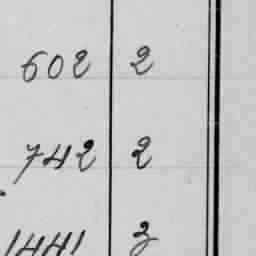 602 2
742 2
1441 3